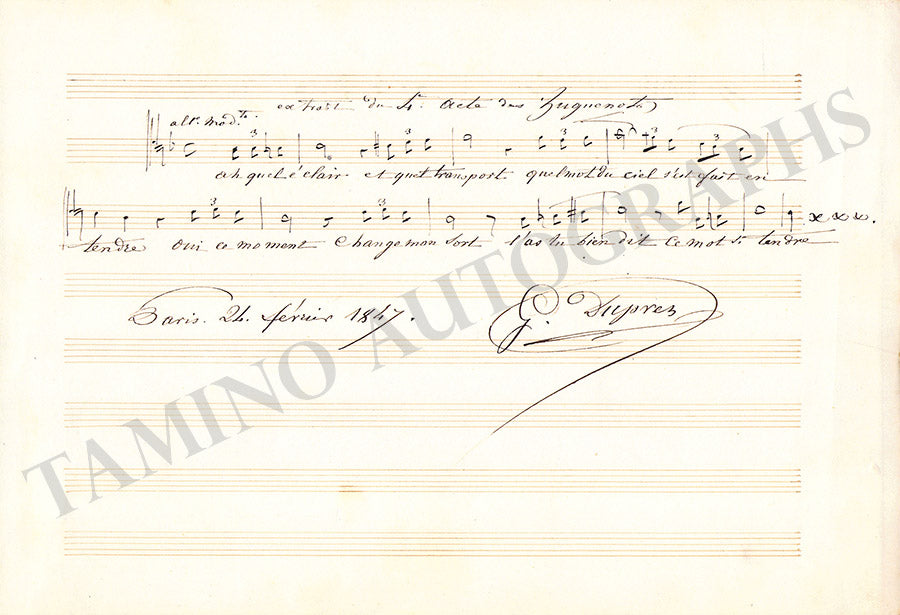 extrait du 4e acte des huguenots
allo modto
ah quel éclair et quel transport quel mot du ciel s'est fait en
tendre oui ce moment change mon sort l'as tu bien dit ce mot si tendre
Paris. 24. février 1847.
G. Duprez
TAMINO AUTOGRAPHS